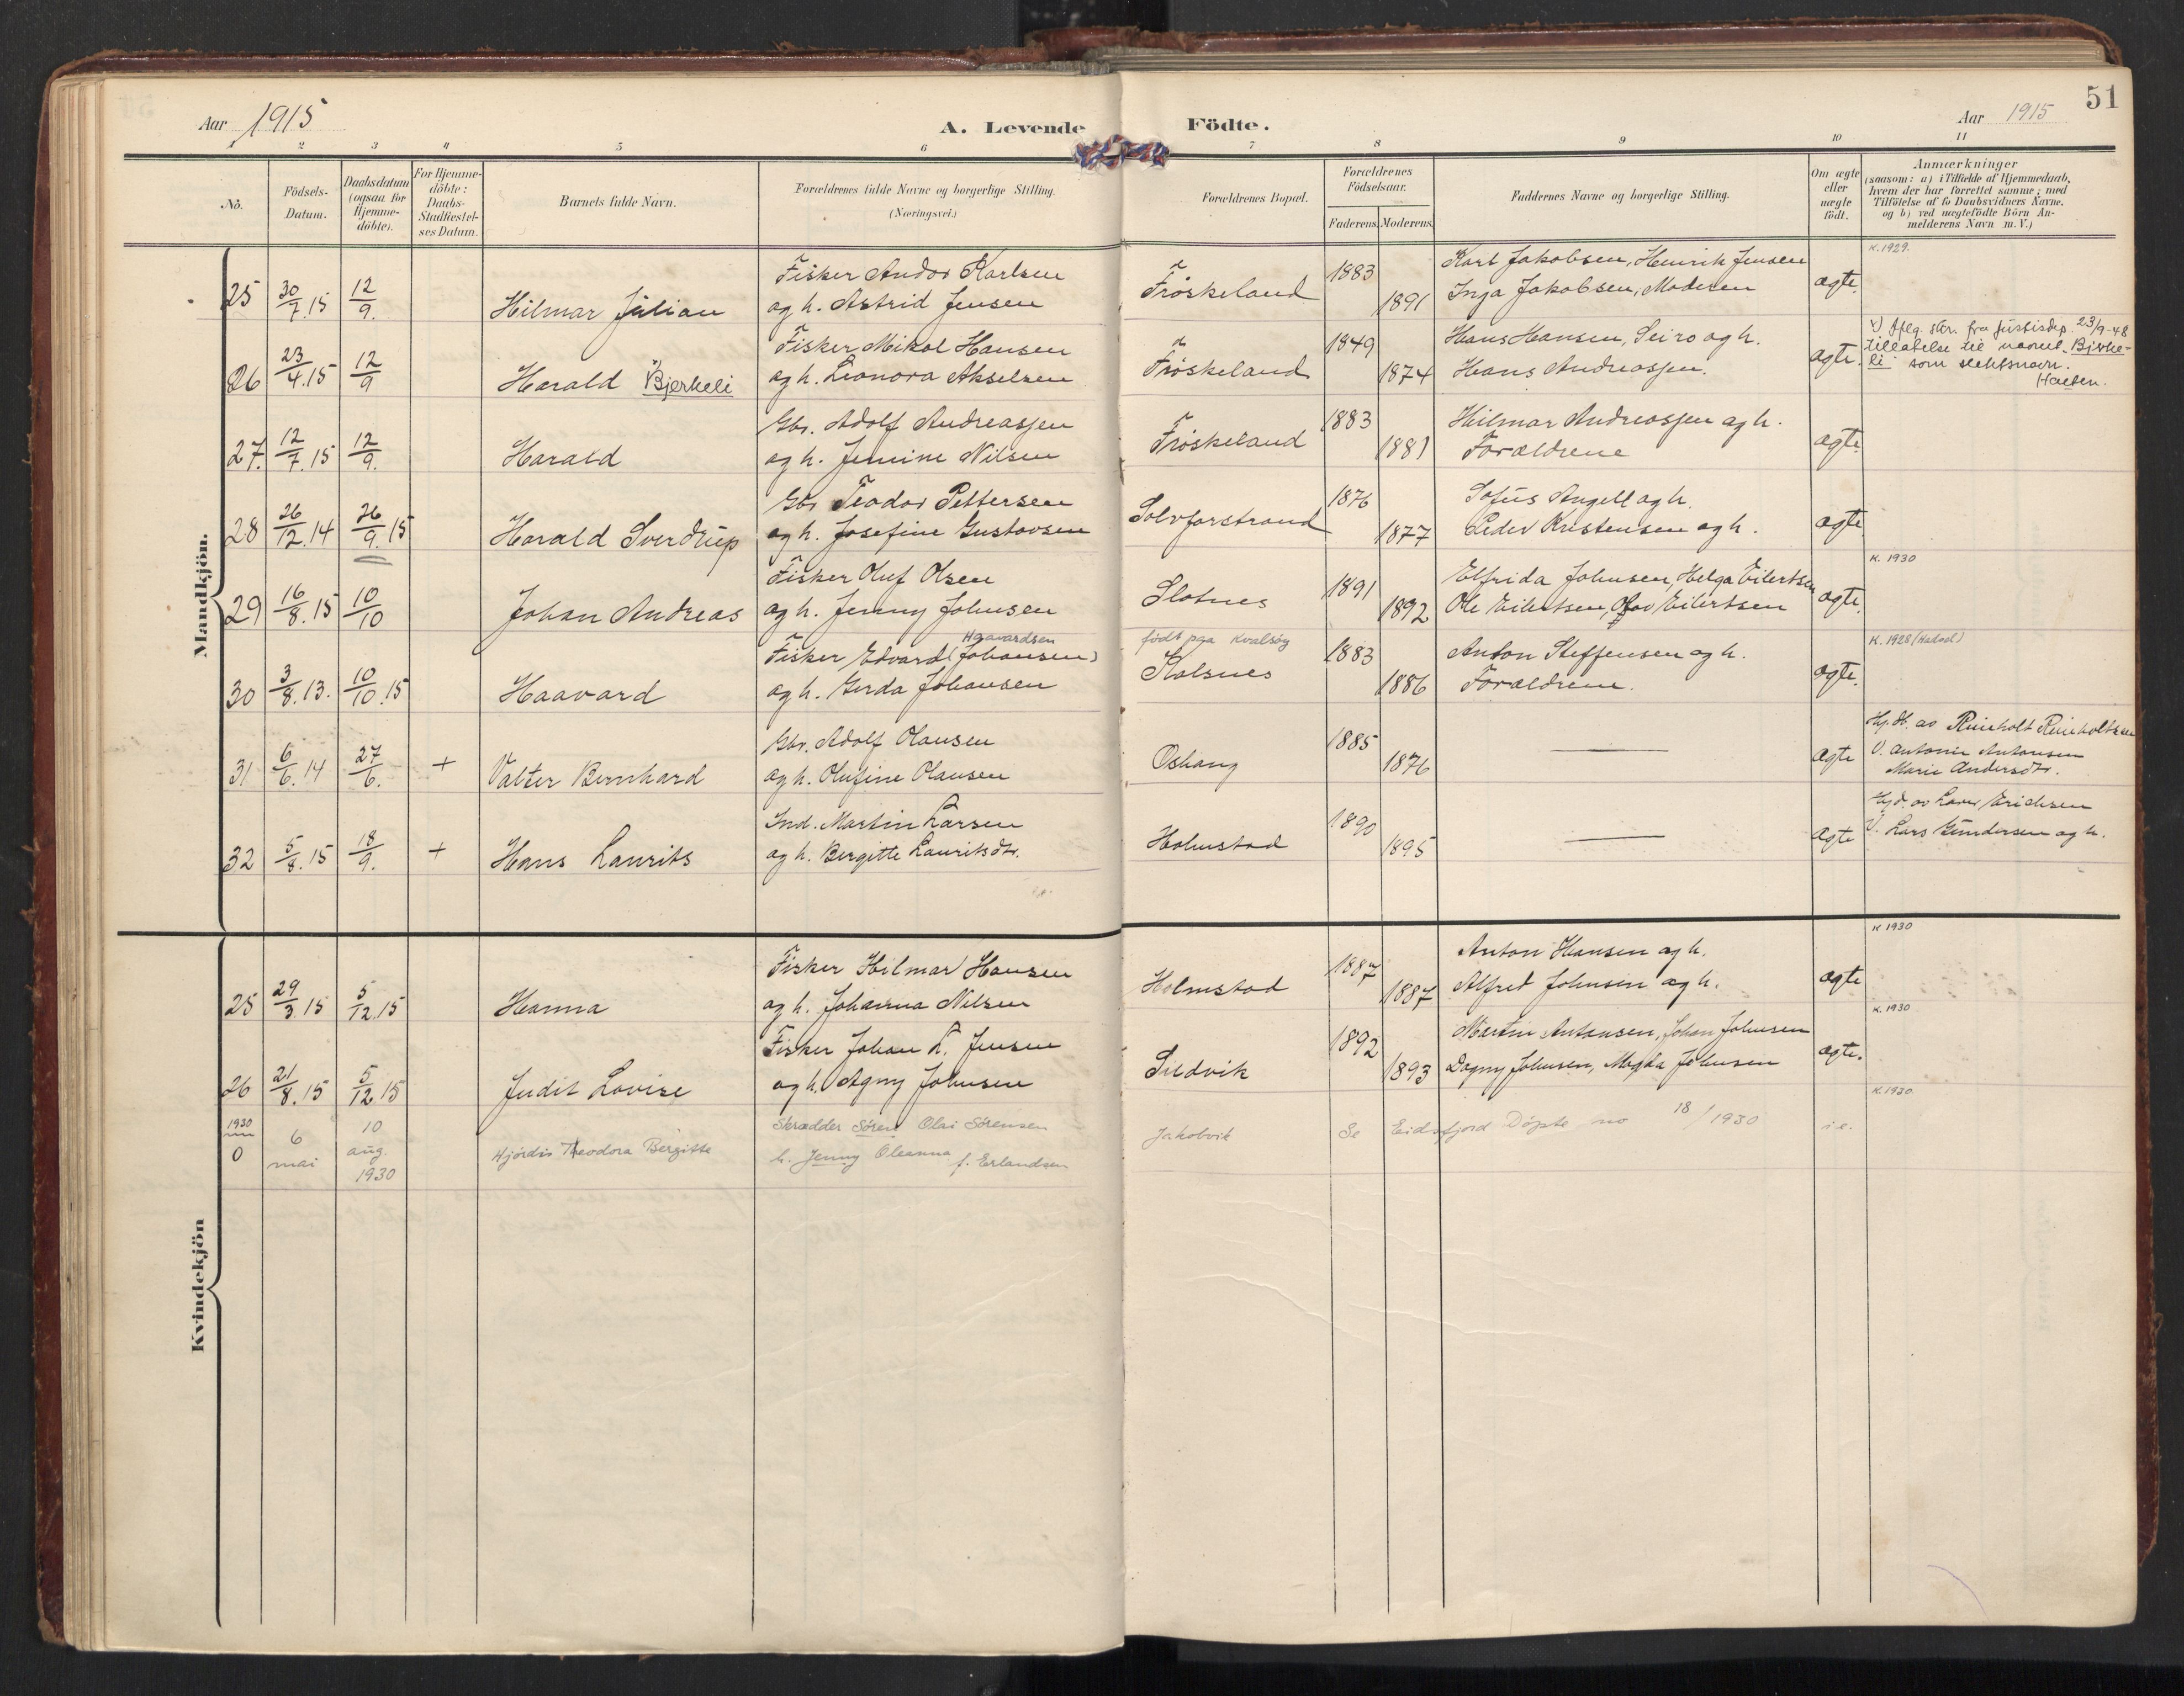 51
Aar 1915
A. Levende Födte.
Aar 1915
1 2 3 4 5 6 7 8 9 10 11
No.
Födsels-Datum.
Daabsdatum (ogsaa for Hjemme-döbte).
For Hjemme-döbte: Daabs-Stadfæstel-ses Datum.
Barnets fulde Navn.
Forældrenes fulde Navne og borgerlige Stilling.
(Næringsvei.)
Forældrenes Bopæl.
Forældrenes Födselsaar.
Faderens. Moderens.
Faddernes Navne og borgerlige Stilling.
Om ægte eller uægte födt.
Anmærkninger
(saasom: a) i Tilfælde af Hjemmedaab,
hvem der har forrettet samme; med
Tilföielse af to Daabsvidners Navne.
og b) ved uægtefödte Börn An-
melderens Navn m. V.)
Mandkjön.
25 30/7.15 12/9. Hilmar Julian
Fisker Andor Karlsen
og h. Astrid Jensen
Frøskeland 1883 1891
Karl Jakobsen, Henrik Jensen
Inga Jakobsen, Moderen
ægte.
K. 1929.
26 23/4.15 12/9 Harald x) Bjerkeli
Fisker Mikal Hansen
og h. Leonora Akselsen
Frøskeland 1849 1874
Hans Hansen, Seiro og h.
Hans Andreassen.
ægte.
x) Iflg. skr. fra Justisdep. 23/9-48
tillatelse til navnet Bjerke-
li som slektsnavn.
27. 12/7.15 12/9. Harald
Gbr. Adolf Andreassen
og h. Jenine Nilsen
Frøskeland 1883 1881
Hilmar Andreassen og h.
Forældrene
ægte.
28 26/12.14 26/9.15 Harald Sverdrup
Gbr Teodor Pettersen
og h. Josefine Gustavsen
Selvforstrand 1876 1877
Sofus Angell og h.
Peder Kristensen og h.
ægte
29 16/8.15 10/10 Johan Andreas
Fisker Oluf Olsen
og h. Jenny Johnsen
Slotnes 1891 1892
Elfrida Johnsen, Helga Eilertsen
Ole Eilertsen, Olav Eilertsen
ægte
K. 1930
30 3/8.13. 10/10.15 Haavard
Haavardsen
Fisker Edvard (Johansen)
og h. Gerda Johansen
født paa Kvalsøy
Kalsnes 1883 1886
Anton Steffensen og h.
Forældrene.
ægte.
K. 1928 (Hadsel)
31 6/6.14 27/6. + Valter Bernhard
Gbr. Adolf Olausen
og h. Olufine Olausen
Oshaug 1885 1876
—
ægte
Hj.d. av Reinholt Reinholtsen
V. Antonie Antonsen
Marie Andersdtr.
32 5/8.15 18/9. + Hans Laurits
Ind. Martin Larsen
og h. Bergitte Lauritsdtr.
Holmstad 1890 1895
—
ægte
Hjd. av Lars Erichsen
V. Lars Gundersen og h.
Kvindekjön
25 29/3.15 5/12.15 Hanna
Fisker Hilmar Hansen
og h. Johanna Nilsen
Holmstad 1887 1887
Anton Hansen og h.
Alfred Johnsen og h.
ægte
K 1930
26 21/8.15 5/12.15 Judit Lovise
Fisker Johan L. Jensen
og h. Agny Johnsen
Sildvik 1892 1893
Martin Antonsen, Johan Johnsen
Dagny Johnsen, Magda Johnsen
ægte.
K. 1930
1930
0 6 mai 10 aug. 1930 Hjördis Theodora Bergitte
Skrædder Sören Olai Sörensen
h. Jenny Oleanna f. Erlandsen
Jakobvik
Se Eidsfjord Döpte no 18/1930
i.e.
K. 1930